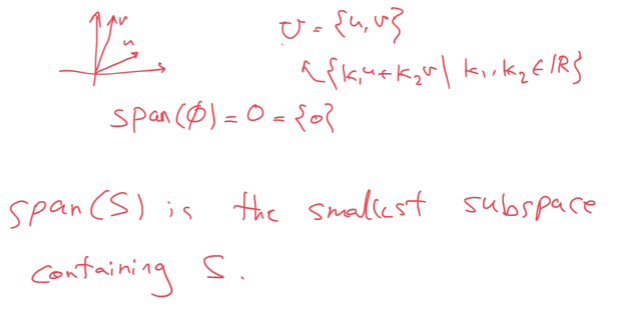 v
u
U = {u, v}
{k₁u + k₂v | k₁, k₂ ∈ ℝ}
span(∅) = 0 = {0}
span(S) is the smallest subspace
containing S.